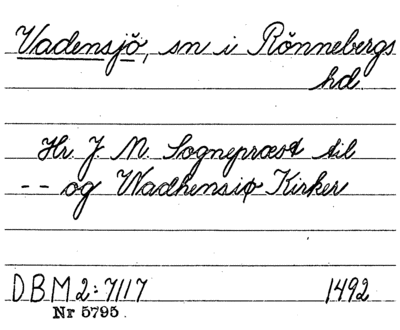 Vadensjö, sn i Rönnebergs
hd.
Hr. J. M. Sognepræst til
-- og Wadhensiø Kirker
DBM 2:7117 1492
Nr 5795.